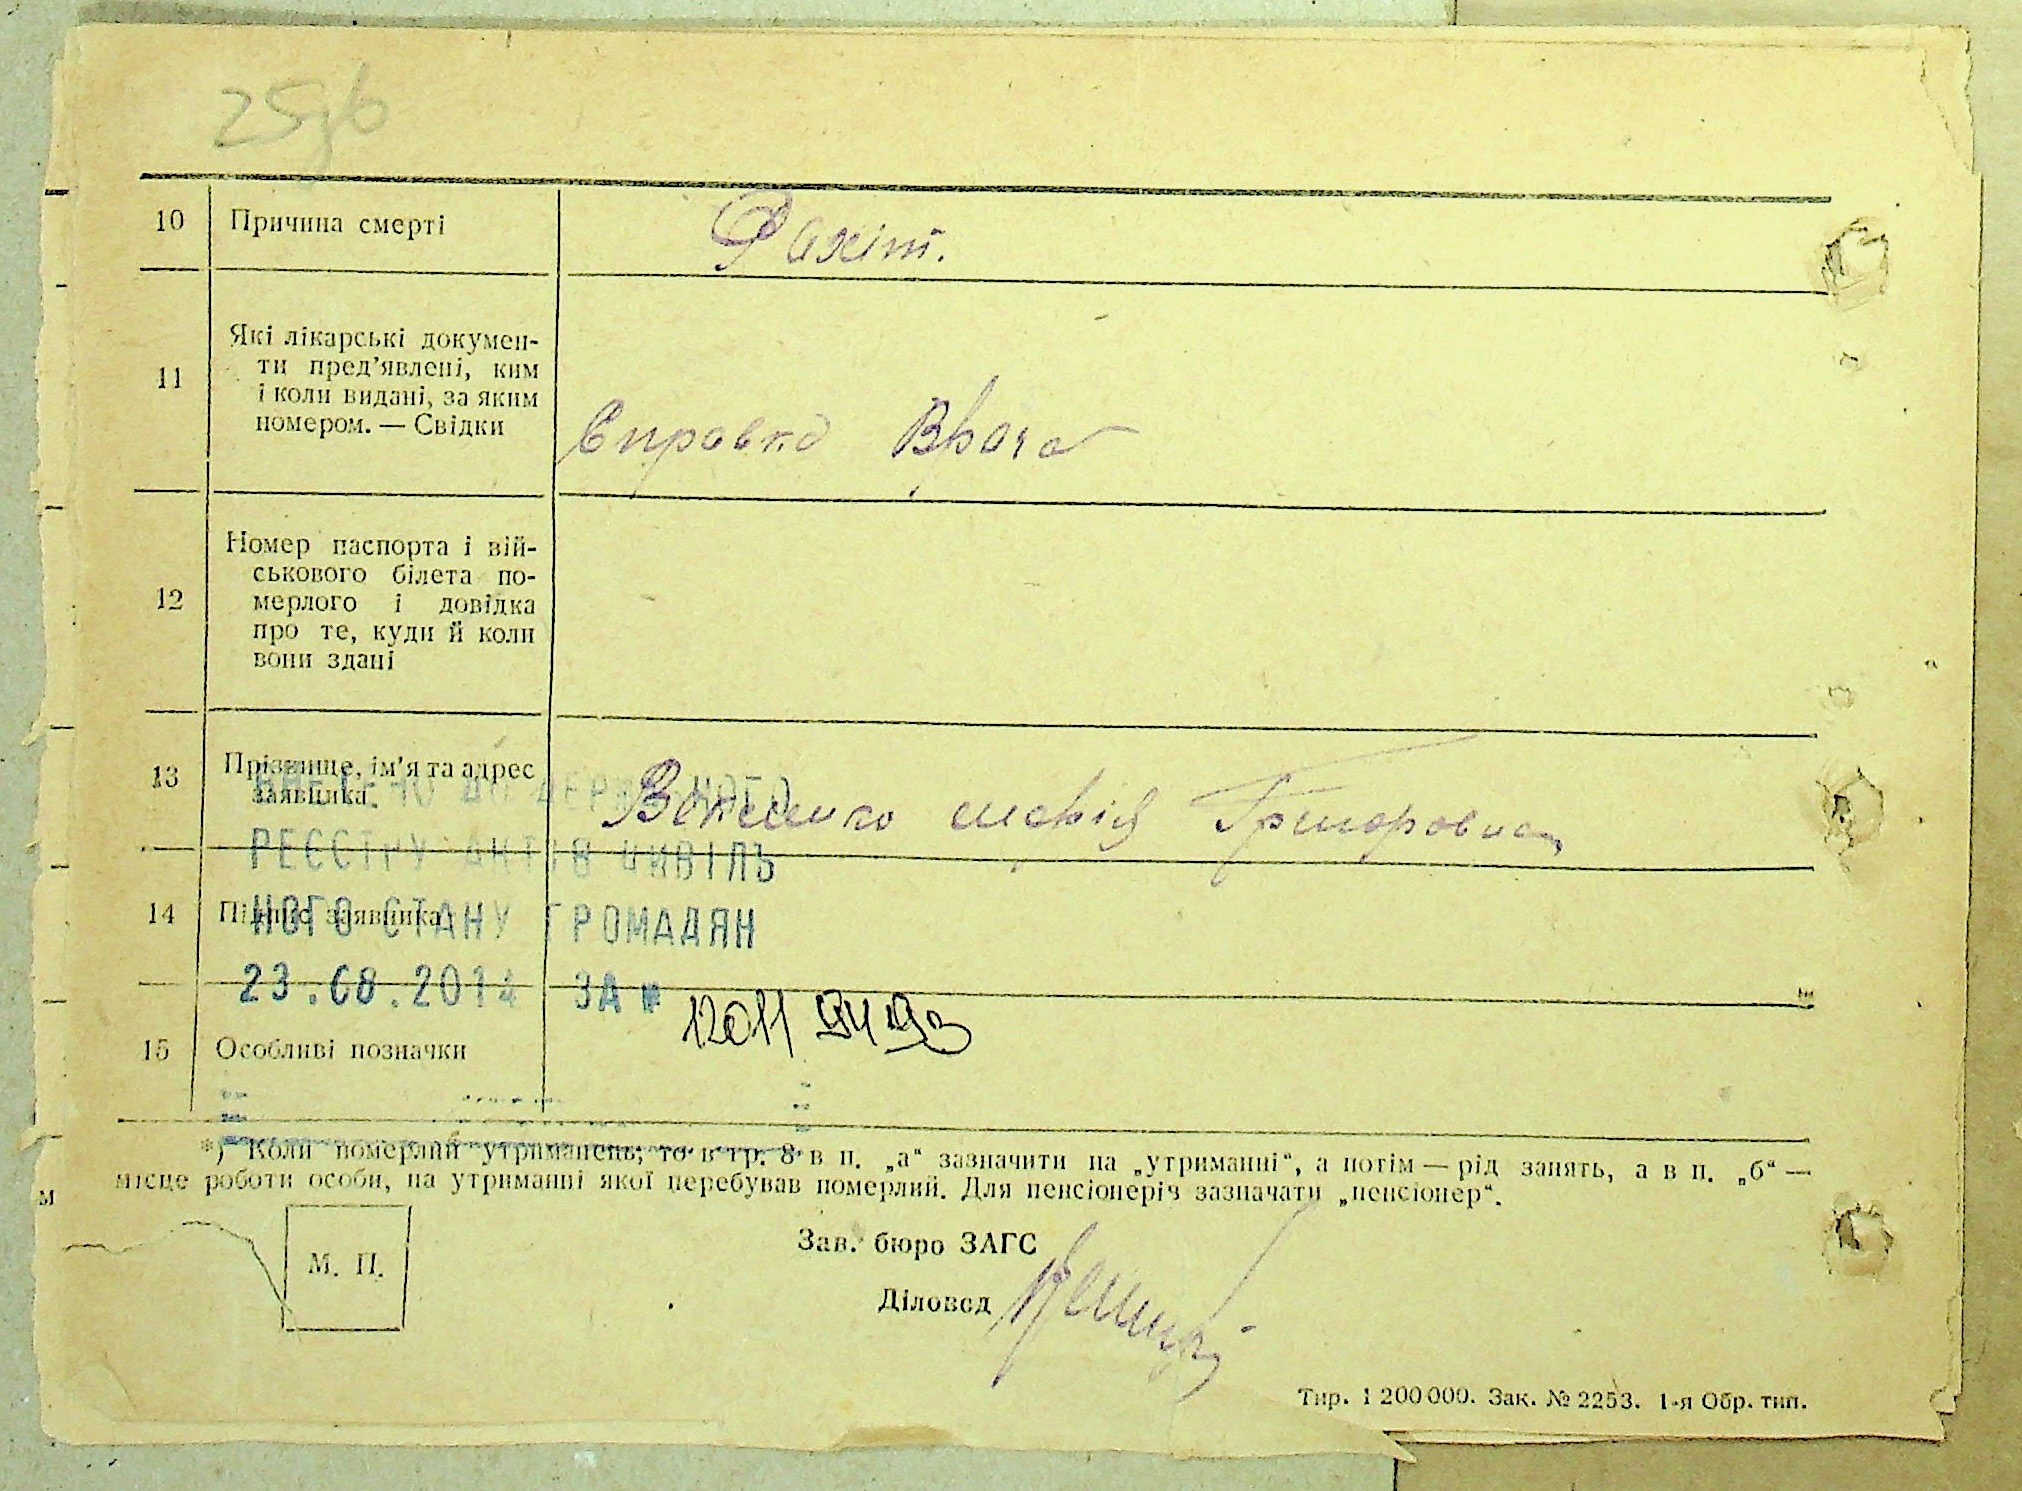 25зв
10 Причина смерті Рахіт.
11 Які лікарські докумен-
ти пред’явлені, ким
і коли видані, за яким
номером. — Свідки
Справка Врача
12 Номер паспорта і вій-
ськового білета по-
мерлого і довідка
про те, куди й коли
вони здані
13 Прізвище, ім’я та адрес
заявника.
Марія Григоровна
ВНЕСЕНО ДО ДЕРЖАВНОГО
РЕЄСТРУ АКТІВ ЦИВІЛЬ
14 Підпис заявника
НОГО СТАНУ ГРОМАДЯН
23.08.2014 ЗА №
15 Особливі позначки
*) Коли померлий утриманець, то в гр. 8 в п. „а“ зазначити на „утриманні“, а потім — рід занять, а в п. „б“ —
місце роботи особи, на утриманні якої перебував померлий. Для пенсіонерів зазначати „пенсіонер“.
М. П.
Зав. бюро ЗАГС
Діловод
Тир. 1 200 000. Зак. № 2253. 1-я Обр. тип.